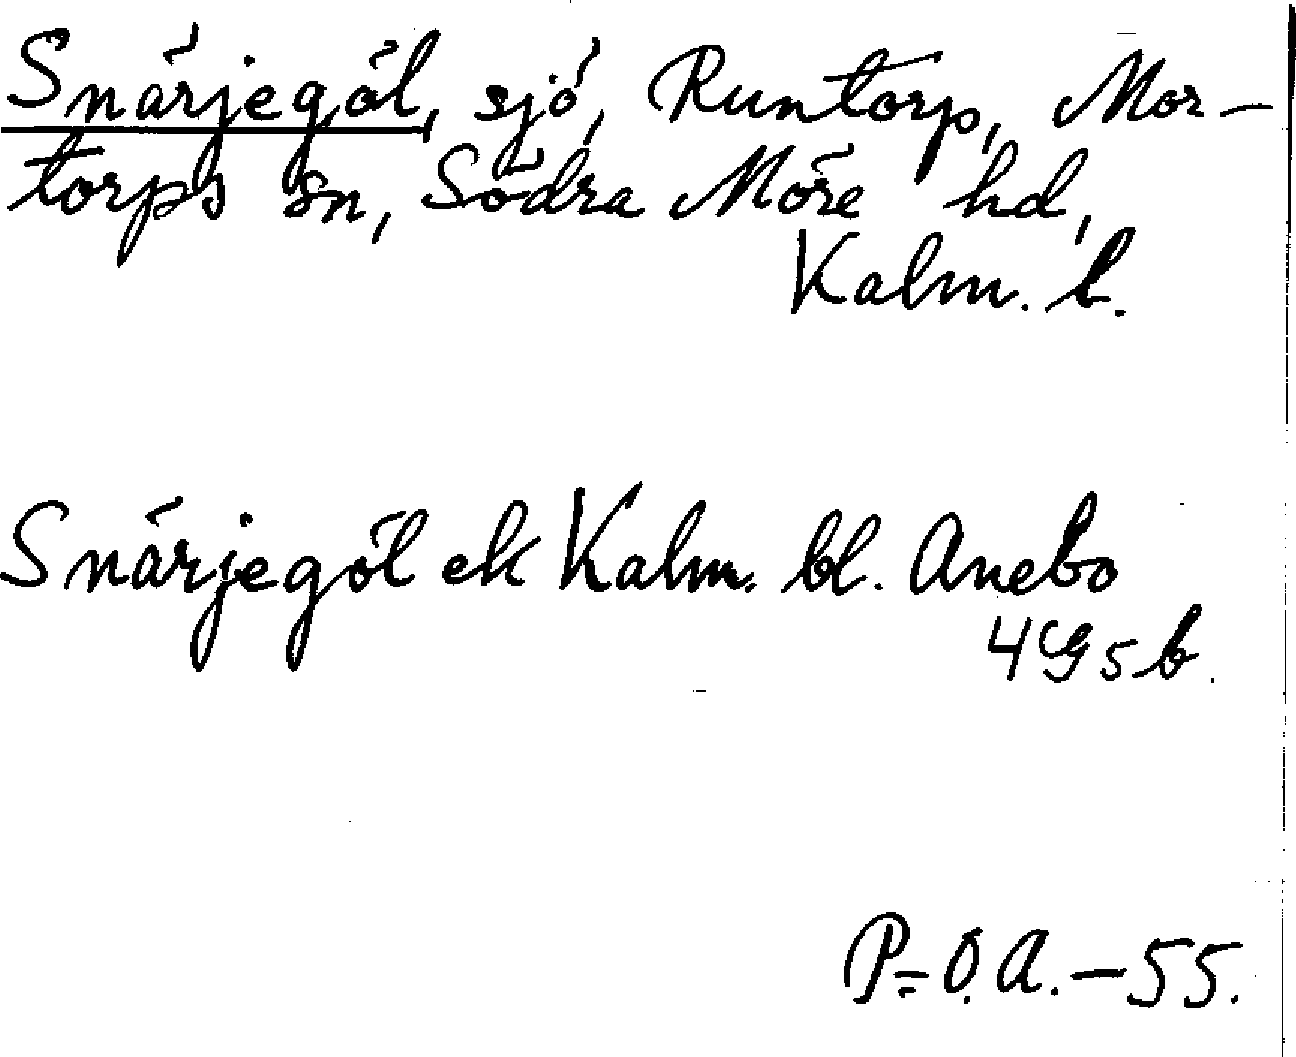 Snärjegöl, sjö, Runtorp, Mor-
torps sn, Södra Möre hd,
Kalm. l.
Snärjegöl ek Kalm. bl. Anebo
4G5b.
P-O.A.-55.